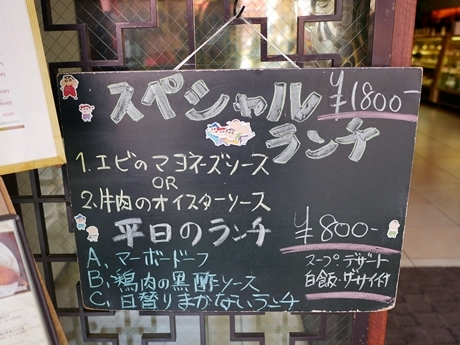 スペシャル
ランチ
¥1800-
1.エビのマヨネーズソース
OR
2.牛肉のオイスターソース
平日のランチ
¥800-
A、マーボードーフ
B、鶏肉の黒酢ソース
C、日替りまかないランチ
スープ・デザート
白飯・ザーサイ付